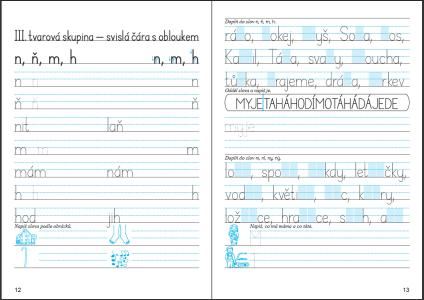 III. tvarová skupina – svislá čára s obloukem
n, ň, m, h n, m, h
n n
ň ň
nit laň
m m m
mám nám
h h h
hod jih
Napiš slova podle obrázků.
12
Doplň do slov n, ň, m, h.
rá o, okej, yš, So a, os,
Ka il, Tá a, sva y, oucha,
tů ka, rajeme, drá a, rkev
Odděl slova a napiš je.
MYJEITAHÁHODÍMOTÁHÁDÁJEDE
myje
Doplň do slov
lo , spo , kdy, let čky,
vod , květi , c, k ry,
lož ce, hra ce, s h, a
Napiš, co má máma a co táta.
M
13